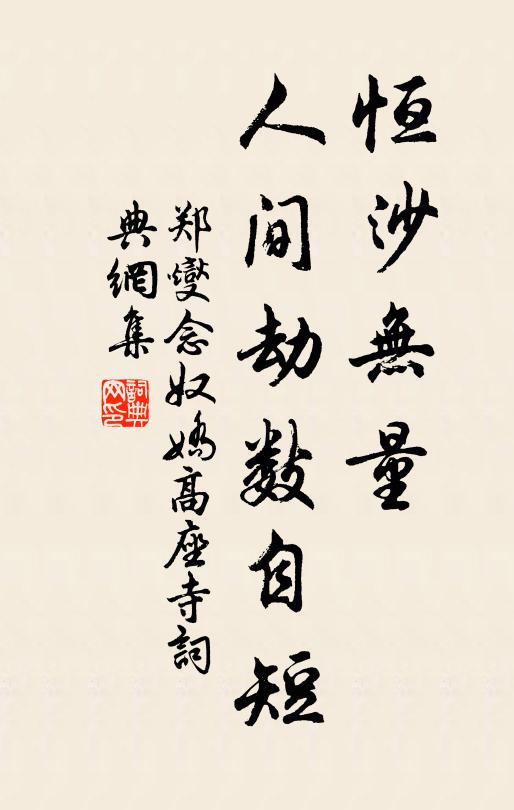 恒沙無量
人間劫數自短
郑燮念奴嬌高座寺詞
典網集
詞典
网印